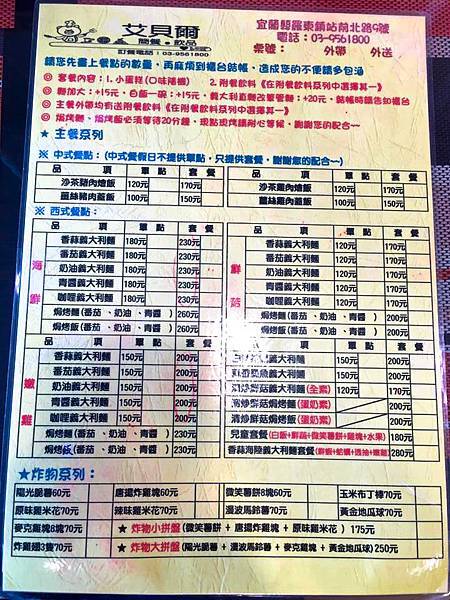 艾貝爾
簡餐・飲品
訂餐電話:03-9561800
宜蘭縣羅東鎮站前北路9號
電話:03-9561800
桌號: 外帶 外送
請您先畫上餐點的數量,再麻煩到櫃台結帳,造成您的不便請多包涵
套餐內容:1.小蛋糕(口味隨機) 2.附餐飲料《在附餐飲料系列中選擇其一》
麵加大:+15元,白飯一碗:+15元,義大利直麵改筆管麵:+20元,結帳時請告知櫃台
主餐外帶均有送附餐飲料《在附餐飲料系列中選擇其一》
焗烤麵、焗烤飯必須等待20分鐘,現點現烤請耐心等候,謝謝您的配合~
★ 主餐系列
※ 中式餐點:(中式餐假日不提供單點,只提供套餐,謝謝您的配合~)
品 項 單點 套餐 品 項 單點 套餐
沙茶豬肉燴飯 120元 170元 沙茶雞肉燴飯 120元 170元
薑絲豬肉蓋飯 100元 150元 薑絲雞肉蓋飯 100元 150元
※ 西式餐點:
品 項 單點 套餐 品 項 單點 套餐
海鮮
香蒜義大利麵 180元 230元
番茄義大利麵 180元 230元
奶油義大利麵 180元 230元
青醬義大利麵 180元 230元
咖哩義大利麵 180元 230元
焗烤麵(番茄、奶油、青醬) 260元
焗烤飯(番茄、奶油、青醬) 260元
鮮菇
香蒜義大利麵 120元 170元
番茄義大利麵 120元 170元
奶油義大利麵 120元 170元
青醬義大利麵 120元 170元
咖哩義大利麵 120元 170元
焗烤麵(番茄、奶油、青醬) 200元
焗烤飯(番茄、奶油、青醬) 200元
嫩雞
香蒜義大利麵 150元 200元
番茄義大利麵 150元 200元
奶油義大利麵 150元 200元
青醬義大利麵 150元 200元
咖哩義大利麵 150元 200元
焗烤麵(番茄、奶油、青醬) 230元
焗烤飯(番茄、奶油、青醬) 230元
義大利麵 150元 200元
義大利麵 150元 200元
清炒鮮菇義大利麵(全素) 120元 170元
清炒鮮菇焗烤麵(蛋奶素) 200元
清炒鮮菇焗烤飯(蛋奶素) 200元
兒童套餐(白飯+鮮蔬+微笑薯餅+雞塊+水果) 180元
香蒜海陸義大利麵套餐(鮮蝦+蛤蠣+透抽+嫩雞) 280元
★炸物系列:
陽光脆薯60元 唐揚炸雞塊70元 微笑薯餅8塊60元 玉米布丁棒70元
原味雞米花70元 辣味雞米花70元 漫波馬鈴薯70元 黃金地瓜球70元
麥克雞塊8塊70元 ★ 炸物小拼盤(微笑薯餅 + 唐揚炸雞塊 + 原味雞米花) 175元
炸雞翅3隻70元 ★ 炸物大拼盤(陽光脆薯 + 漫波馬鈴薯 + 麥克雞塊 + 黃金地瓜球)250元